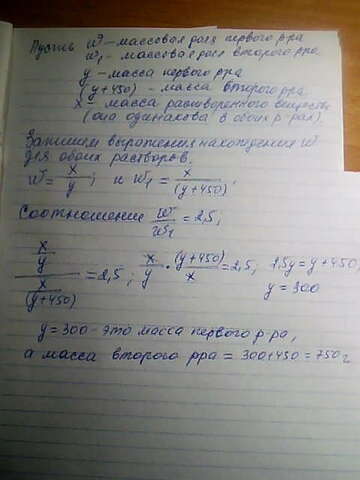 Пусть w - массовая доля первого р-ра
w₁ - массовая доля второго р-ра
y - масса первого р-ра
(y+450) - масса второго р-ра
x - масса растворенного вещества
(она одинакова в обоих р-рах).
Запишем выражения нахождения w
для обоих растворов.
w = x/y ; и w₁ = x/(y+450) ;
Соотношение w/w₁ = 2,5;
(x/y)/(x/(y+450)) = 2,5 ; x/y · (y+450)/x = 2,5; 2,5y = y+450
y = 300
y = 300 - это масса первого р-ра,
а масса второго р-ра = 300+450 = 750г